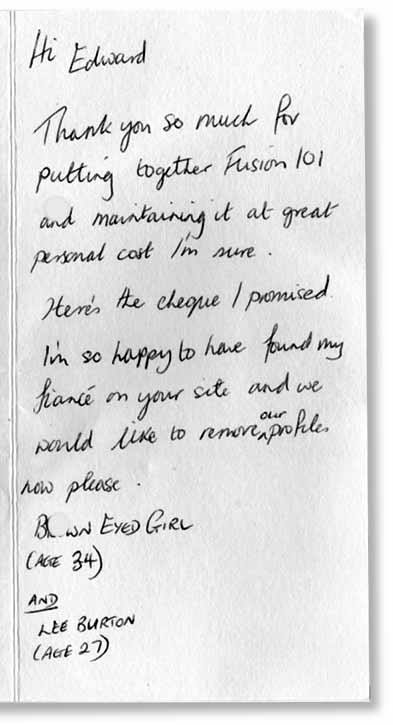 Hi Edward
Thank you so much for
putting together Fusion 101
and maintaining it at great
personal cost I'm sure.
Here's the cheque I promised
I'm so happy to have found my
fiancé on your site and we
would like to remove our profiles
now please.
EYED GIRL
(AGE 34)
AND
LEE BURTON
(AGE 27)